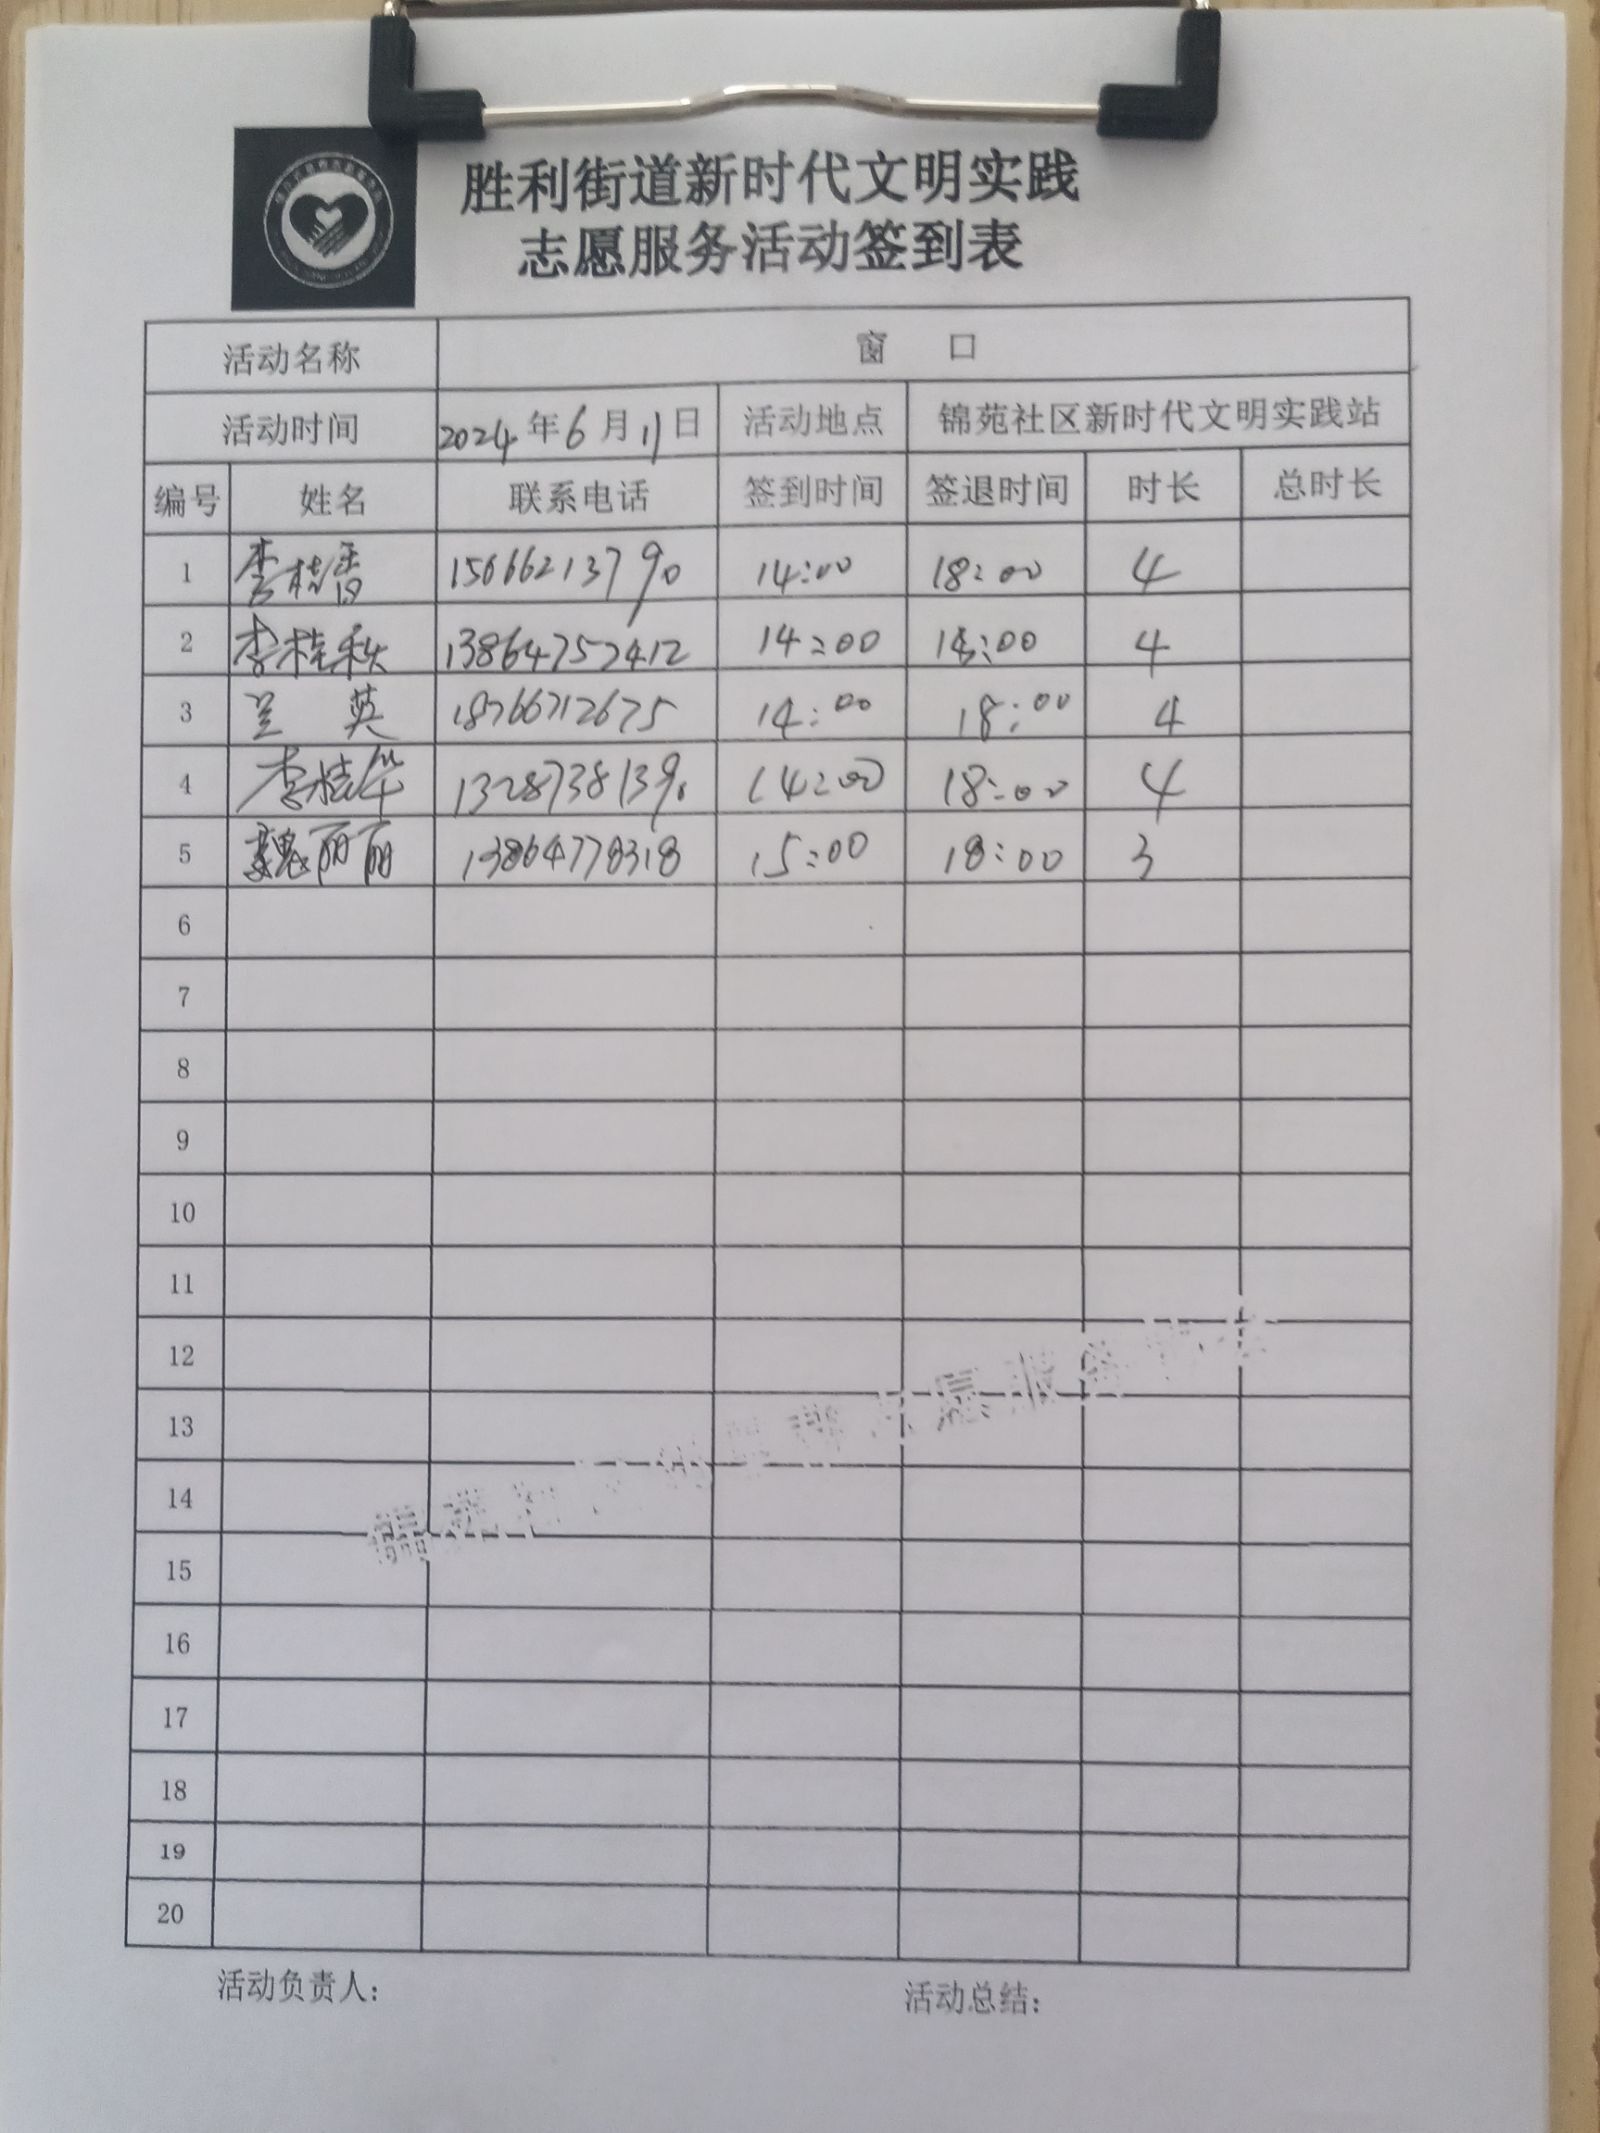 胜利街道新时代文明实践
志愿服务活动签到表
活动名称 窗 口
活动时间 2024年6月11日 活动地点 锦苑社区新时代文明实践站
编号 姓名 联系电话 签到时间 签退时间 时长 总时长
1 李桂香 15666213790 14:00 18:00 4
2 李桂秋 13864752412 14:00 18:00 4
3 兰 英 18766712675 14:00 18:00 4
4 李桂华 13287381390 14:00 18:00 4
5 魏丽丽 13864778318 15:00 18:00 3
6
7
8
9
10
11
12
13
14
15
16
17
18
19
20
活动负责人: 活动总结: